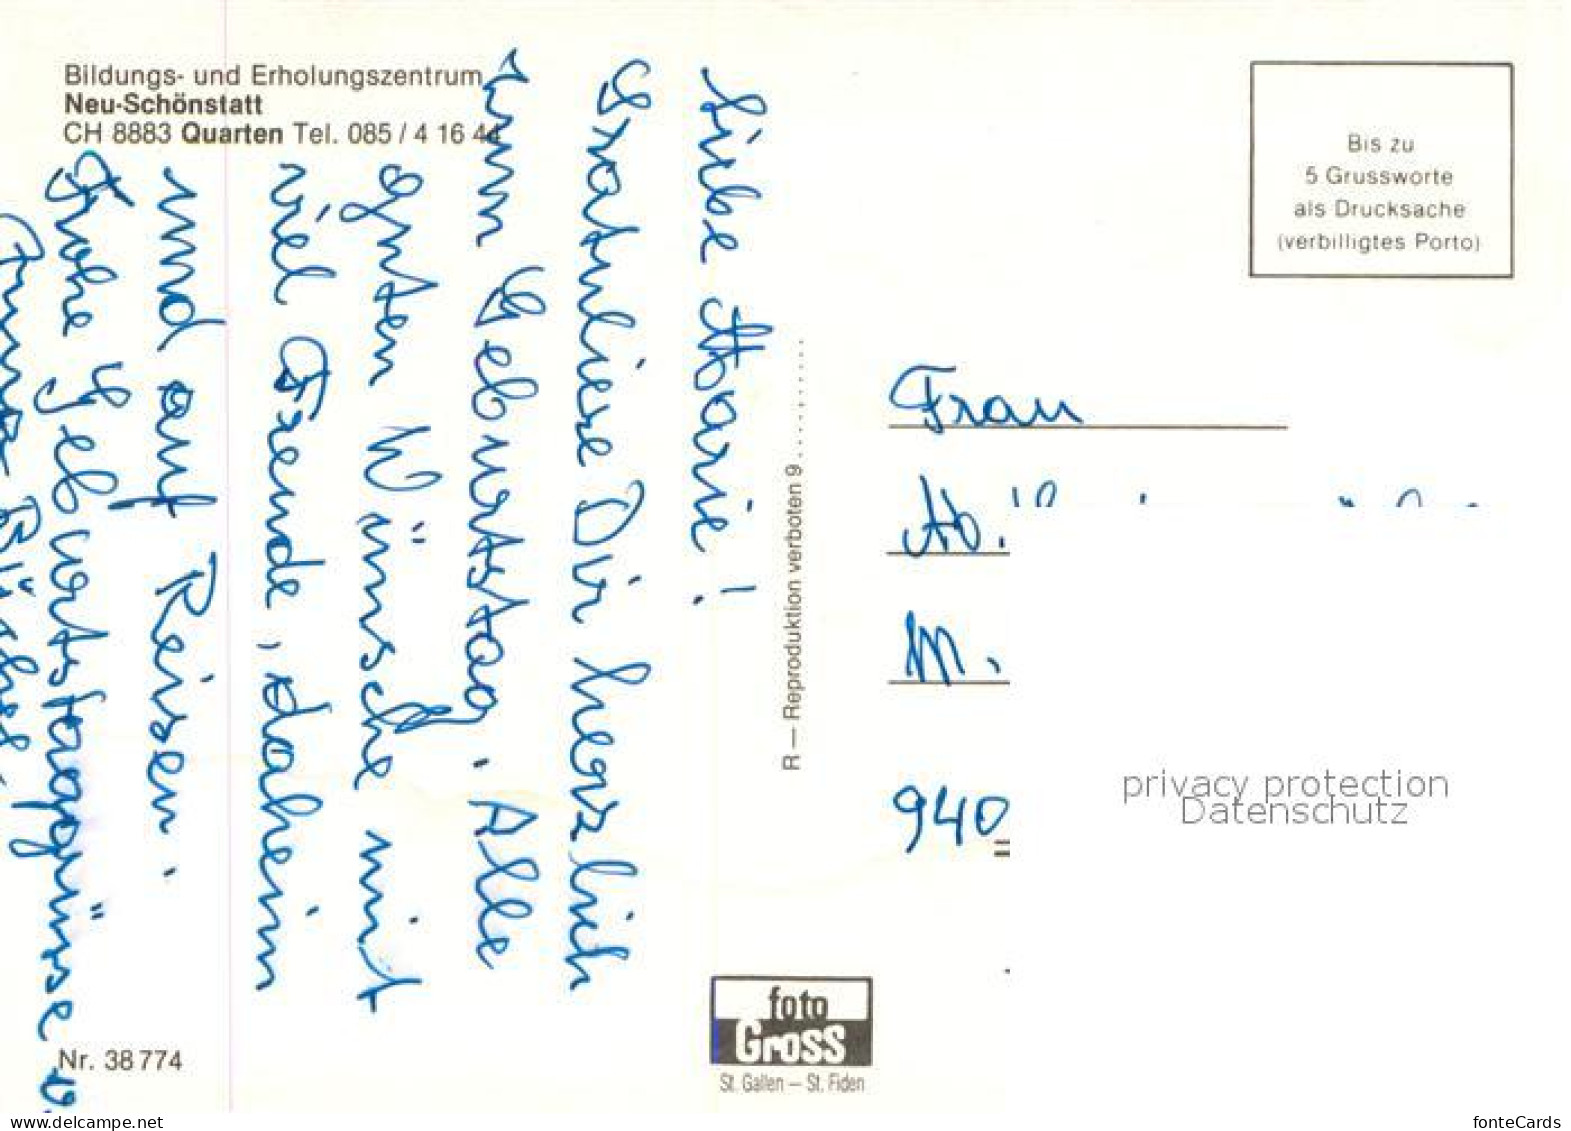 Bildungs- und Erholungszentrum
Neu-Schönstatt
CH 8883 Quarten Tel. 085 / 4 16 44
Liebe Marie!
Gratuliere Dir herzlich
zum Geburtstag. Alle
guten Wünsche mit
viel Freude, daheim
und auf Reisen.
Frohe Geburtstagsgrüsse v.
Nr. 38 774
R — Reproduktion verboten 9..........
foto
Gross
St. Gallen — St. Fiden
Bis zu
5 Grussworte
als Drucksache
(verbilligtes Porto)
Frau
M.
940
privacy protection
Datenschutz
www.delcampe.net
fonteCards